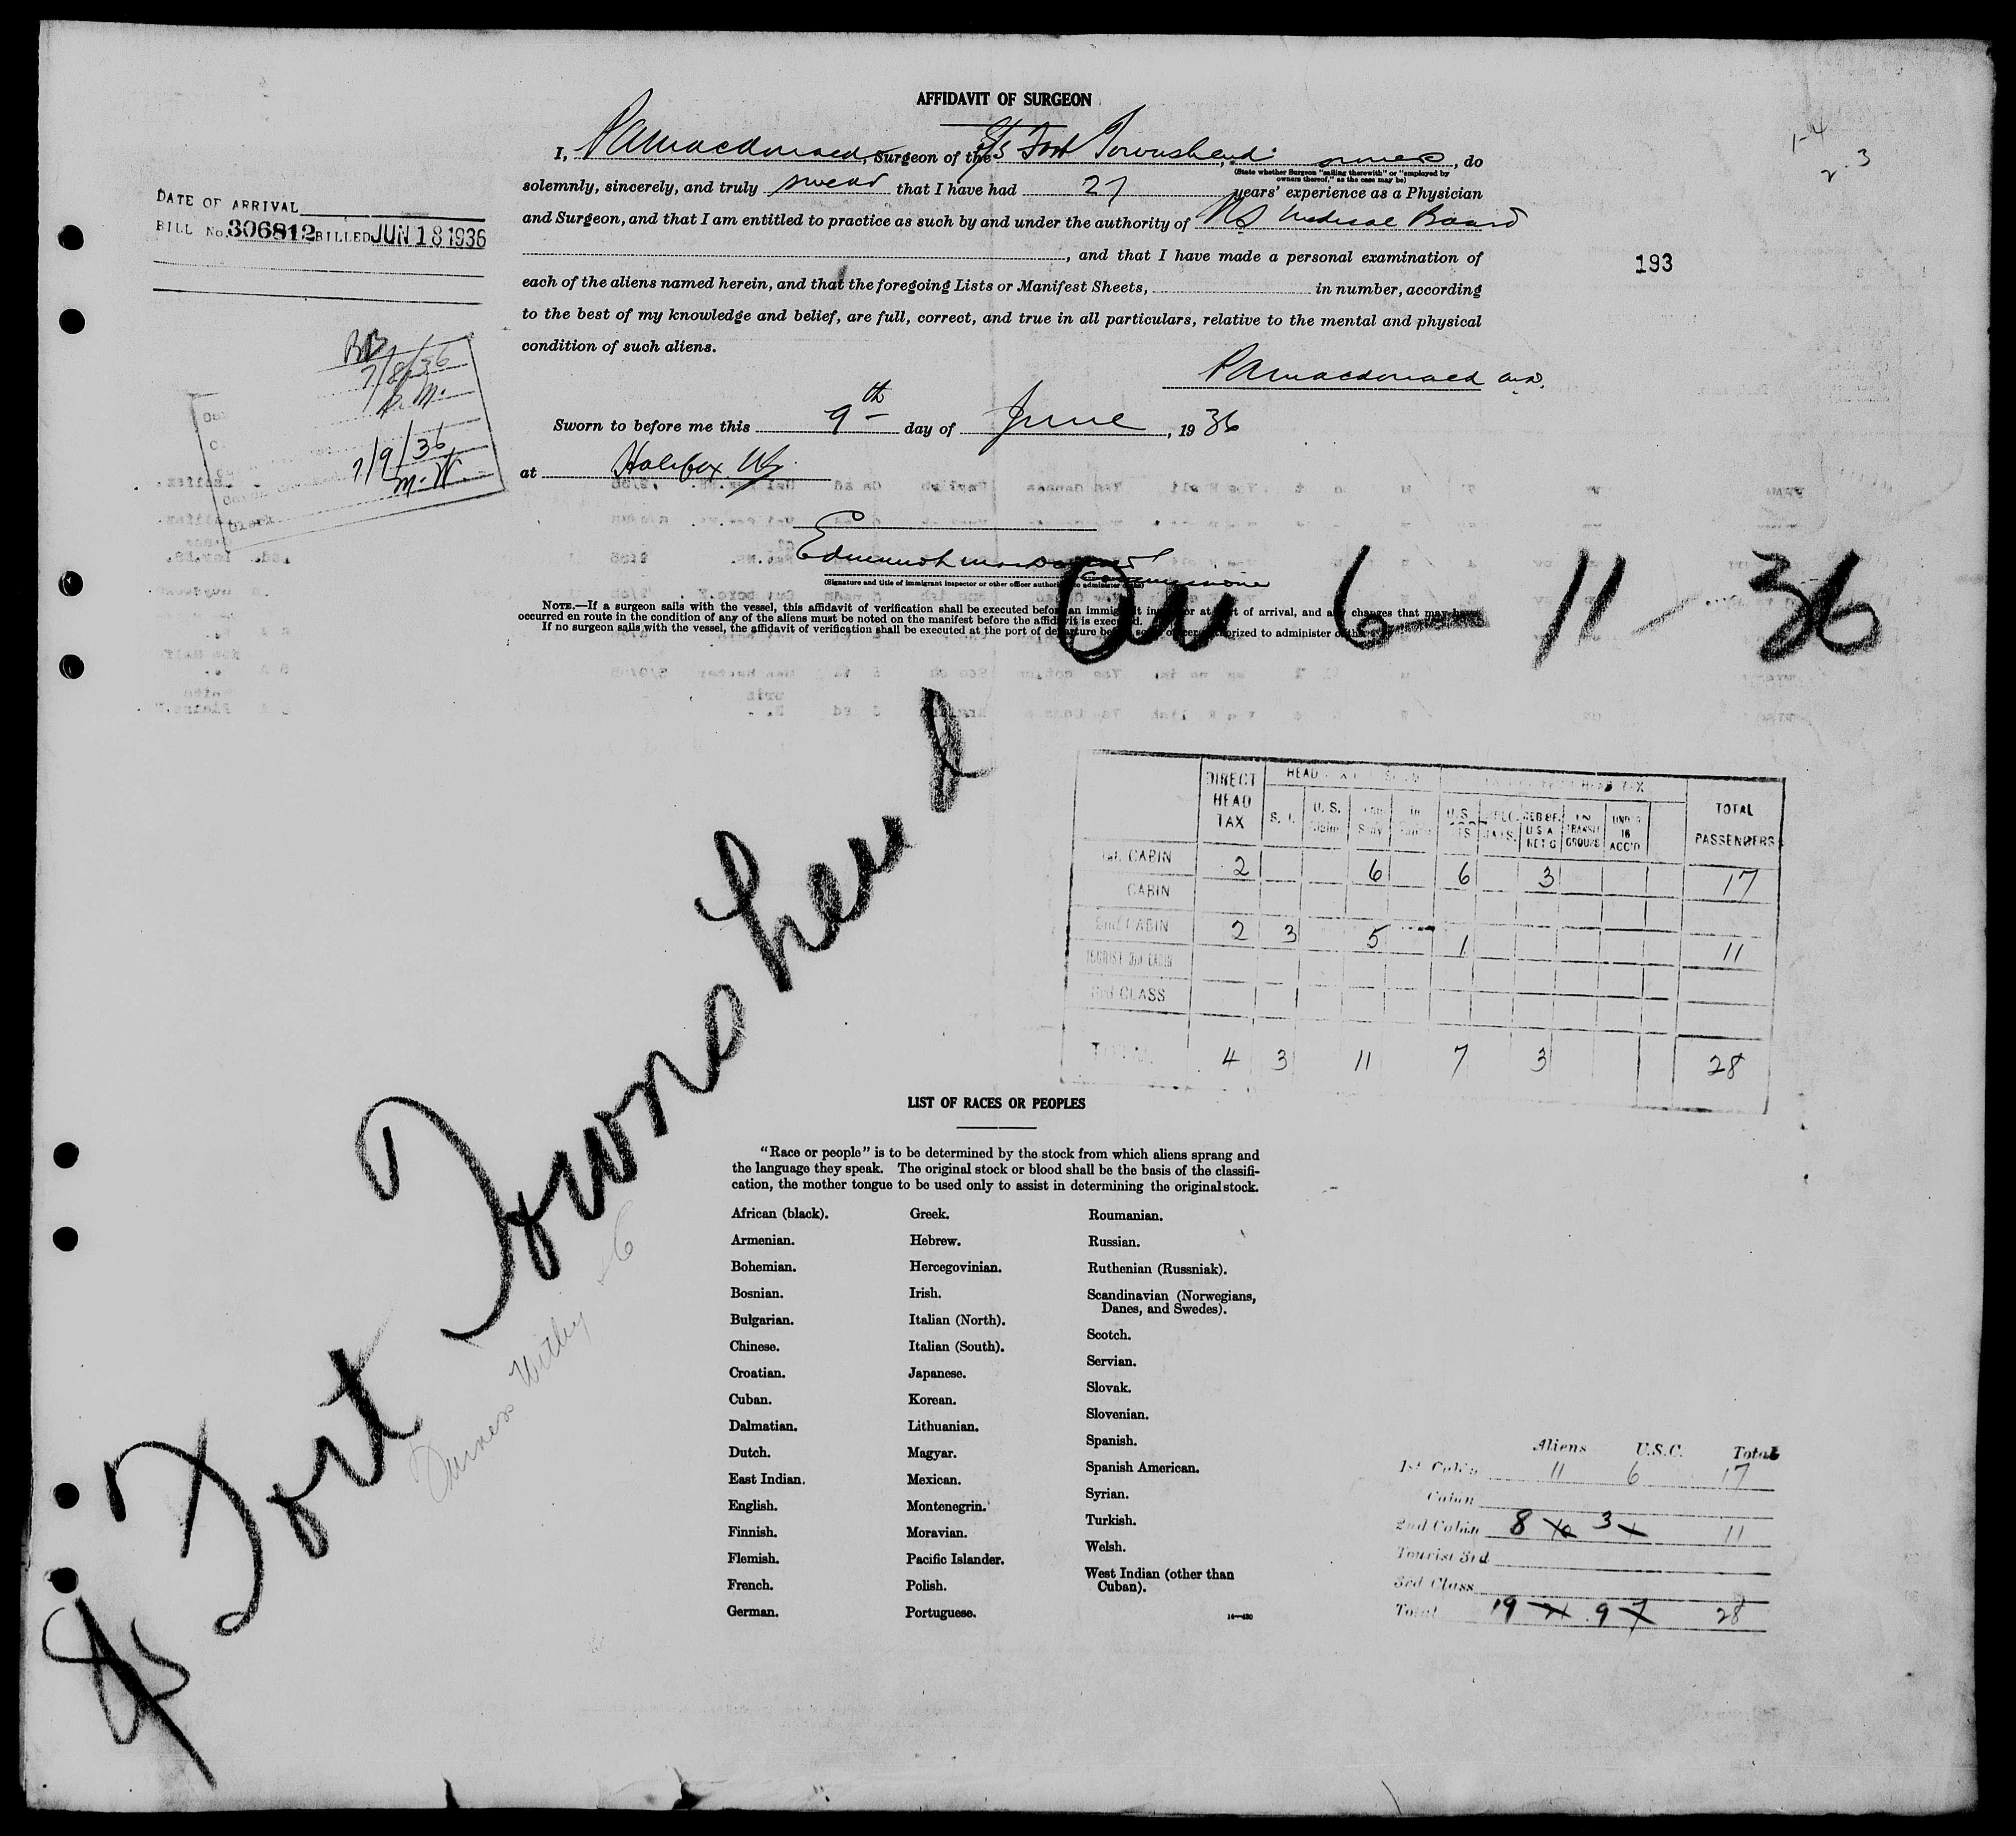 AFFIDAVIT OF SURGEON
I, PAMacdonald, Surgeon of the S/S Fort Townshend, owners, do
(State whether Surgeon "sailing therewith" or "employed by owners thereof," as the case may be)
solemnly, sincerely, and truly swear that I have had 27 years' experience as a Physician
and Surgeon, and that I am entitled to practice as such by and under the authority of NS Medical Board
, and that I have made a personal examination of
each of the aliens named herein, and that the foregoing Lists or Manifest Sheets, in number, according
to the best of my knowledge and belief, are full, correct, and true in all particulars, relative to the mental and physical
condition of such aliens.
PAMacdonald M.D.
Sworn to before me this 9th day of June, 1936
at Halifax NS.
Commissioner
(Signature and title of immigrant inspector or other officer authorized to administer oaths)
NOTE.—If a surgeon sails with the vessel, this affidavit of verification shall be executed before an immigrant inspector at port of arrival, and any changes that may have
occurred en route in the condition of any of the aliens must be noted on the manifest before the affidavit is executed.
If no surgeon sails with the vessel, the affidavit of verification shall be executed at the port of departure before some officer authorized to administer oaths.
1-4
2 3
193
DATE OF ARRIVAL
BILL No. 306812 BILLED JUN 18 1936
7/8/36
7/9/36
M.W.
Clerk
6-11-36
S/S Fort Townshend
Furness Withy
DIRECT HEAD TAX
HEAD TAX
S. I.
U. S.
TOTAL PASSENGERS
1st. CABIN 2 6 6 3 17
CABIN
2nd CABIN 2 3 5 1 11
TOURIST 3rd CABIN
3rd CLASS
TOTAL 4 3 11 7 3 28
LIST OF RACES OR PEOPLES
"Race or people" is to be determined by the stock from which aliens sprang and
the language they speak. The original stock or blood shall be the basis of the classifi-
cation, the mother tongue to be used only to assist in determining the original stock.
African (black).
Armenian.
Bohemian.
Bosnian.
Bulgarian.
Chinese.
Croatian.
Cuban.
Dalmatian.
Dutch.
East Indian.
English.
Finnish.
Flemish.
French.
German.
Greek.
Hebrew.
Hercegovinian.
Irish.
Italian (North).
Italian (South).
Japanese.
Korean.
Lithuanian.
Magyar.
Mexican.
Montenegrin.
Moravian.
Pacific Islander.
Polish.
Portuguese.
Roumanian.
Russian.
Ruthenian (Russniak).
Scandinavian (Norwegians,
Danes, and Swedes).
Scotch.
Servian.
Slovak.
Slovenian.
Spanish.
Spanish American.
Syrian.
Turkish.
Welsh.
West Indian (other than
Cuban).
Aliens U.S.C. Total
1st Cabin 11 6 17
Cabin
2nd Cabin 8 3 11
Tourist 3rd
3rd Class
Total 19 9 28